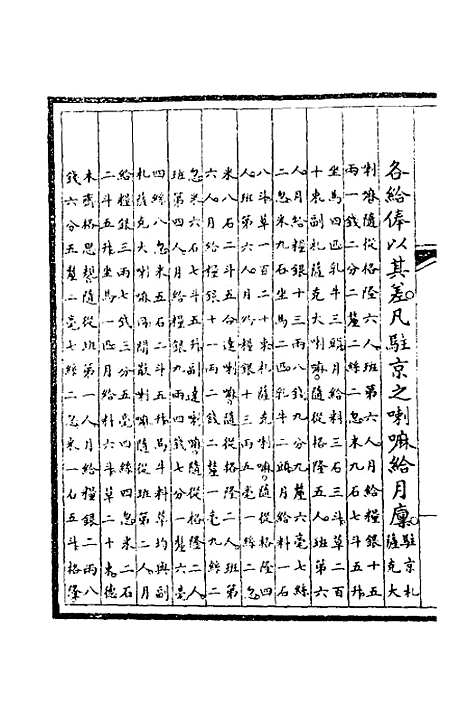 各給俸以其差凡駐京之喇嘛給月廩駐京札
薩克大
喇嘛隨從格隆六人班第六人月給糧銀十五
兩一錢二分二釐二絲二忽米九石七斗五升
坐馬四匹乳牛三頭月給料三石三斗草二百
十束副札薩克大喇嘛隨從格隆五人班第六
人月給糧銀十三兩八錢九分九釐六毫七絲
二忽米九石坐馬二匹乳牛二頭月給料一石
八斗草一百二十束札薩克喇嘛隨從格隆四
人班第六人月給糧銀十三兩五毫一絲二忽
米八石二斗五合達喇嘛隨從格隆二人班第
六人月給糧銀十一兩二錢二分一毫九絲二
忽米六石七斗五升副達喇嘛隨從格隆二人
班第四人月給糧銀九兩四錢七分一釐六毫
四絲八忽米五石二斗五升馬牛料草均與副
札薩克大喇嘛同閒散喇嘛隨從班第二人月
給糧銀三兩七錢三分五毫四絲四忽米二石
二斗五升坐馬一匹月給料六斗草二十束德
木齊格思隨從班第一人月給糧銀二兩八
錢六分五釐二毫七絲二忽米一石五斗格隆